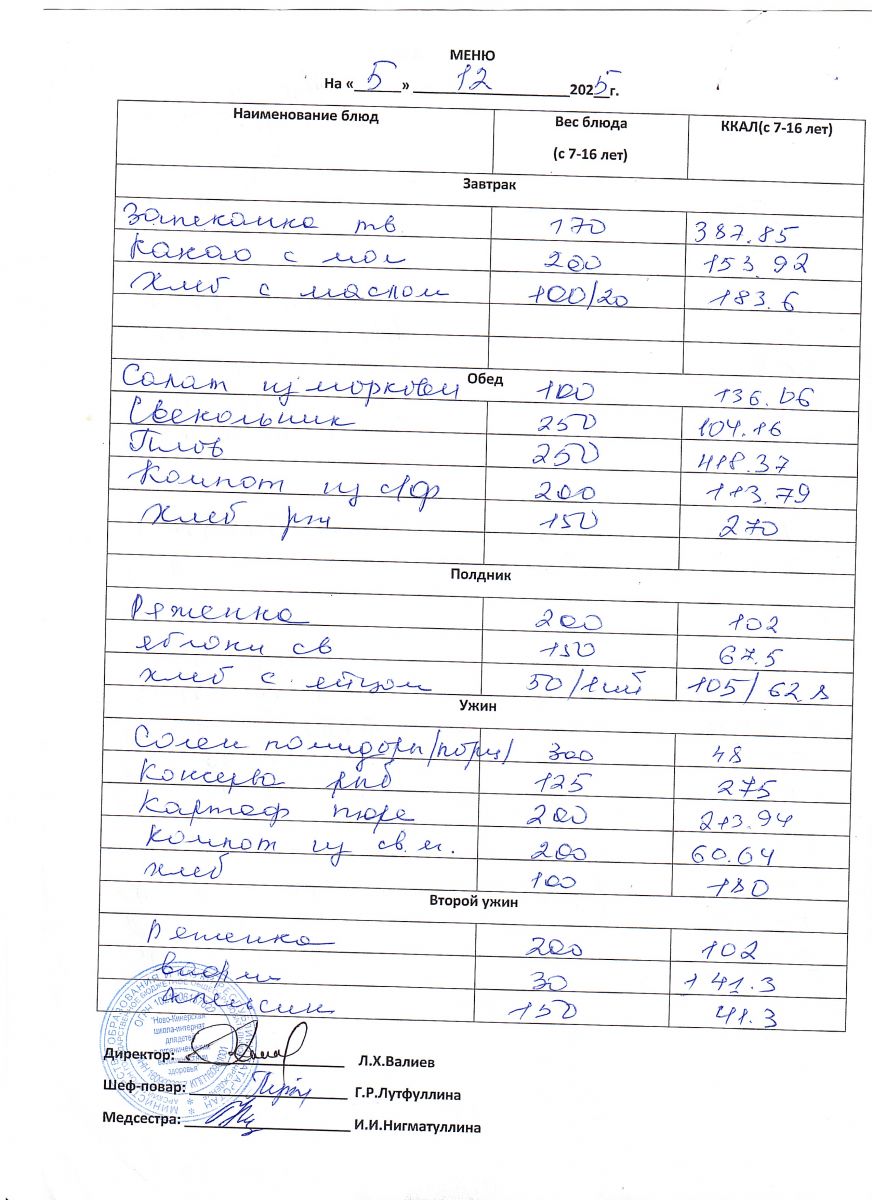 МЕНЮ
На « 5 » 12 2025 г.
Наименование блюд Вес блюда (с 7-16 лет) ККАЛ(с 7-16 лет)
Завтрак
Запеканка тв. 170 387.85
Какао с мол 200 153.92
Хлеб с маслом 100/20 183.6
Обед
Салат из моркови 100 136.06
Свекольник 250 104.16
Плов 250 418.37
Компот из с/ф 200 113.79
Хлеб рж 150 270
Полдник
Ряженка 200 102
яблоки св 150 67.5
хлеб с яйцом 50/1шт 105/62.8
Ужин
Солен помидоры/порц/ 300 48
Консерва рыб 125 275
Картоф пюре 200 213.94
Компот из св.м. 200 60.64
хлеб 100 180
Второй ужин
Ряженка 200 102
вафли 30 141.3
Апельсин 150 41.3
Директор: Л.Х.Валиев
Шеф-повар: Г.Р.Лутфуллина
Медсестра: И.И.Нигматуллина